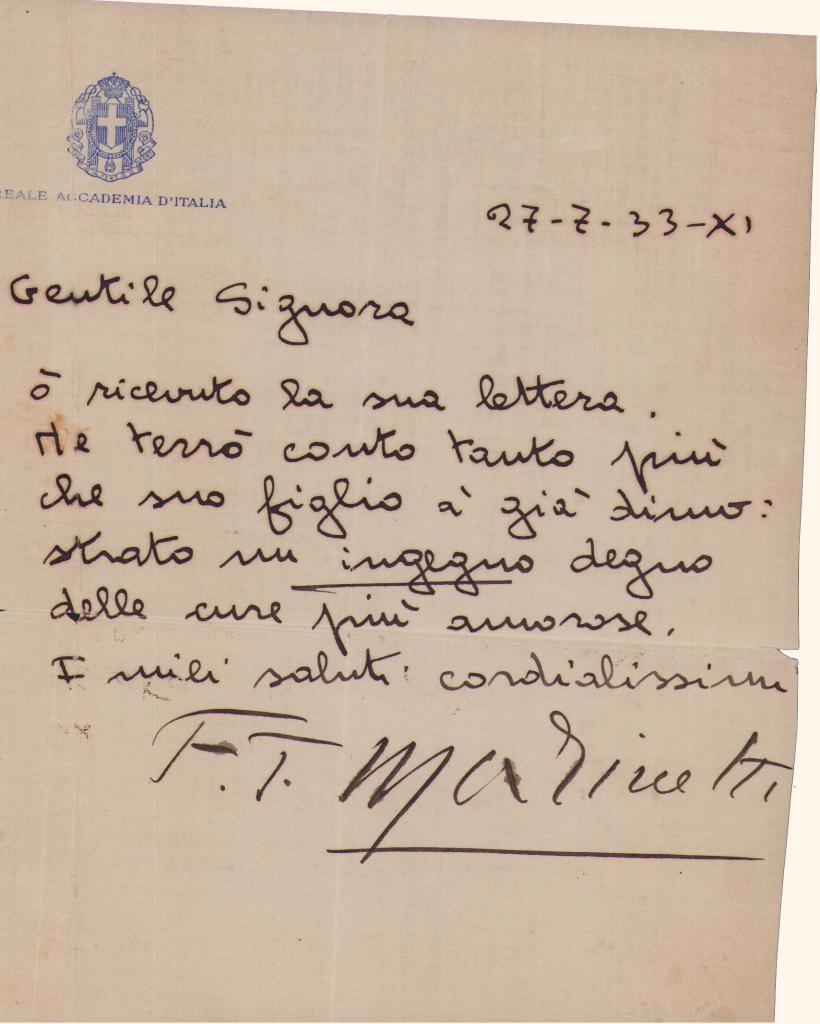 REALE ACCADEMIA D'ITALIA
27-7-33-XI
Gentile Signora
ò ricevuto la sua lettera.
Ne terrò conto tanto più
che suo figlio à già dimo:
strato un ingegno degno
delle cure più amorose.
I miei saluti cordialissimi
F.T. Marinetti